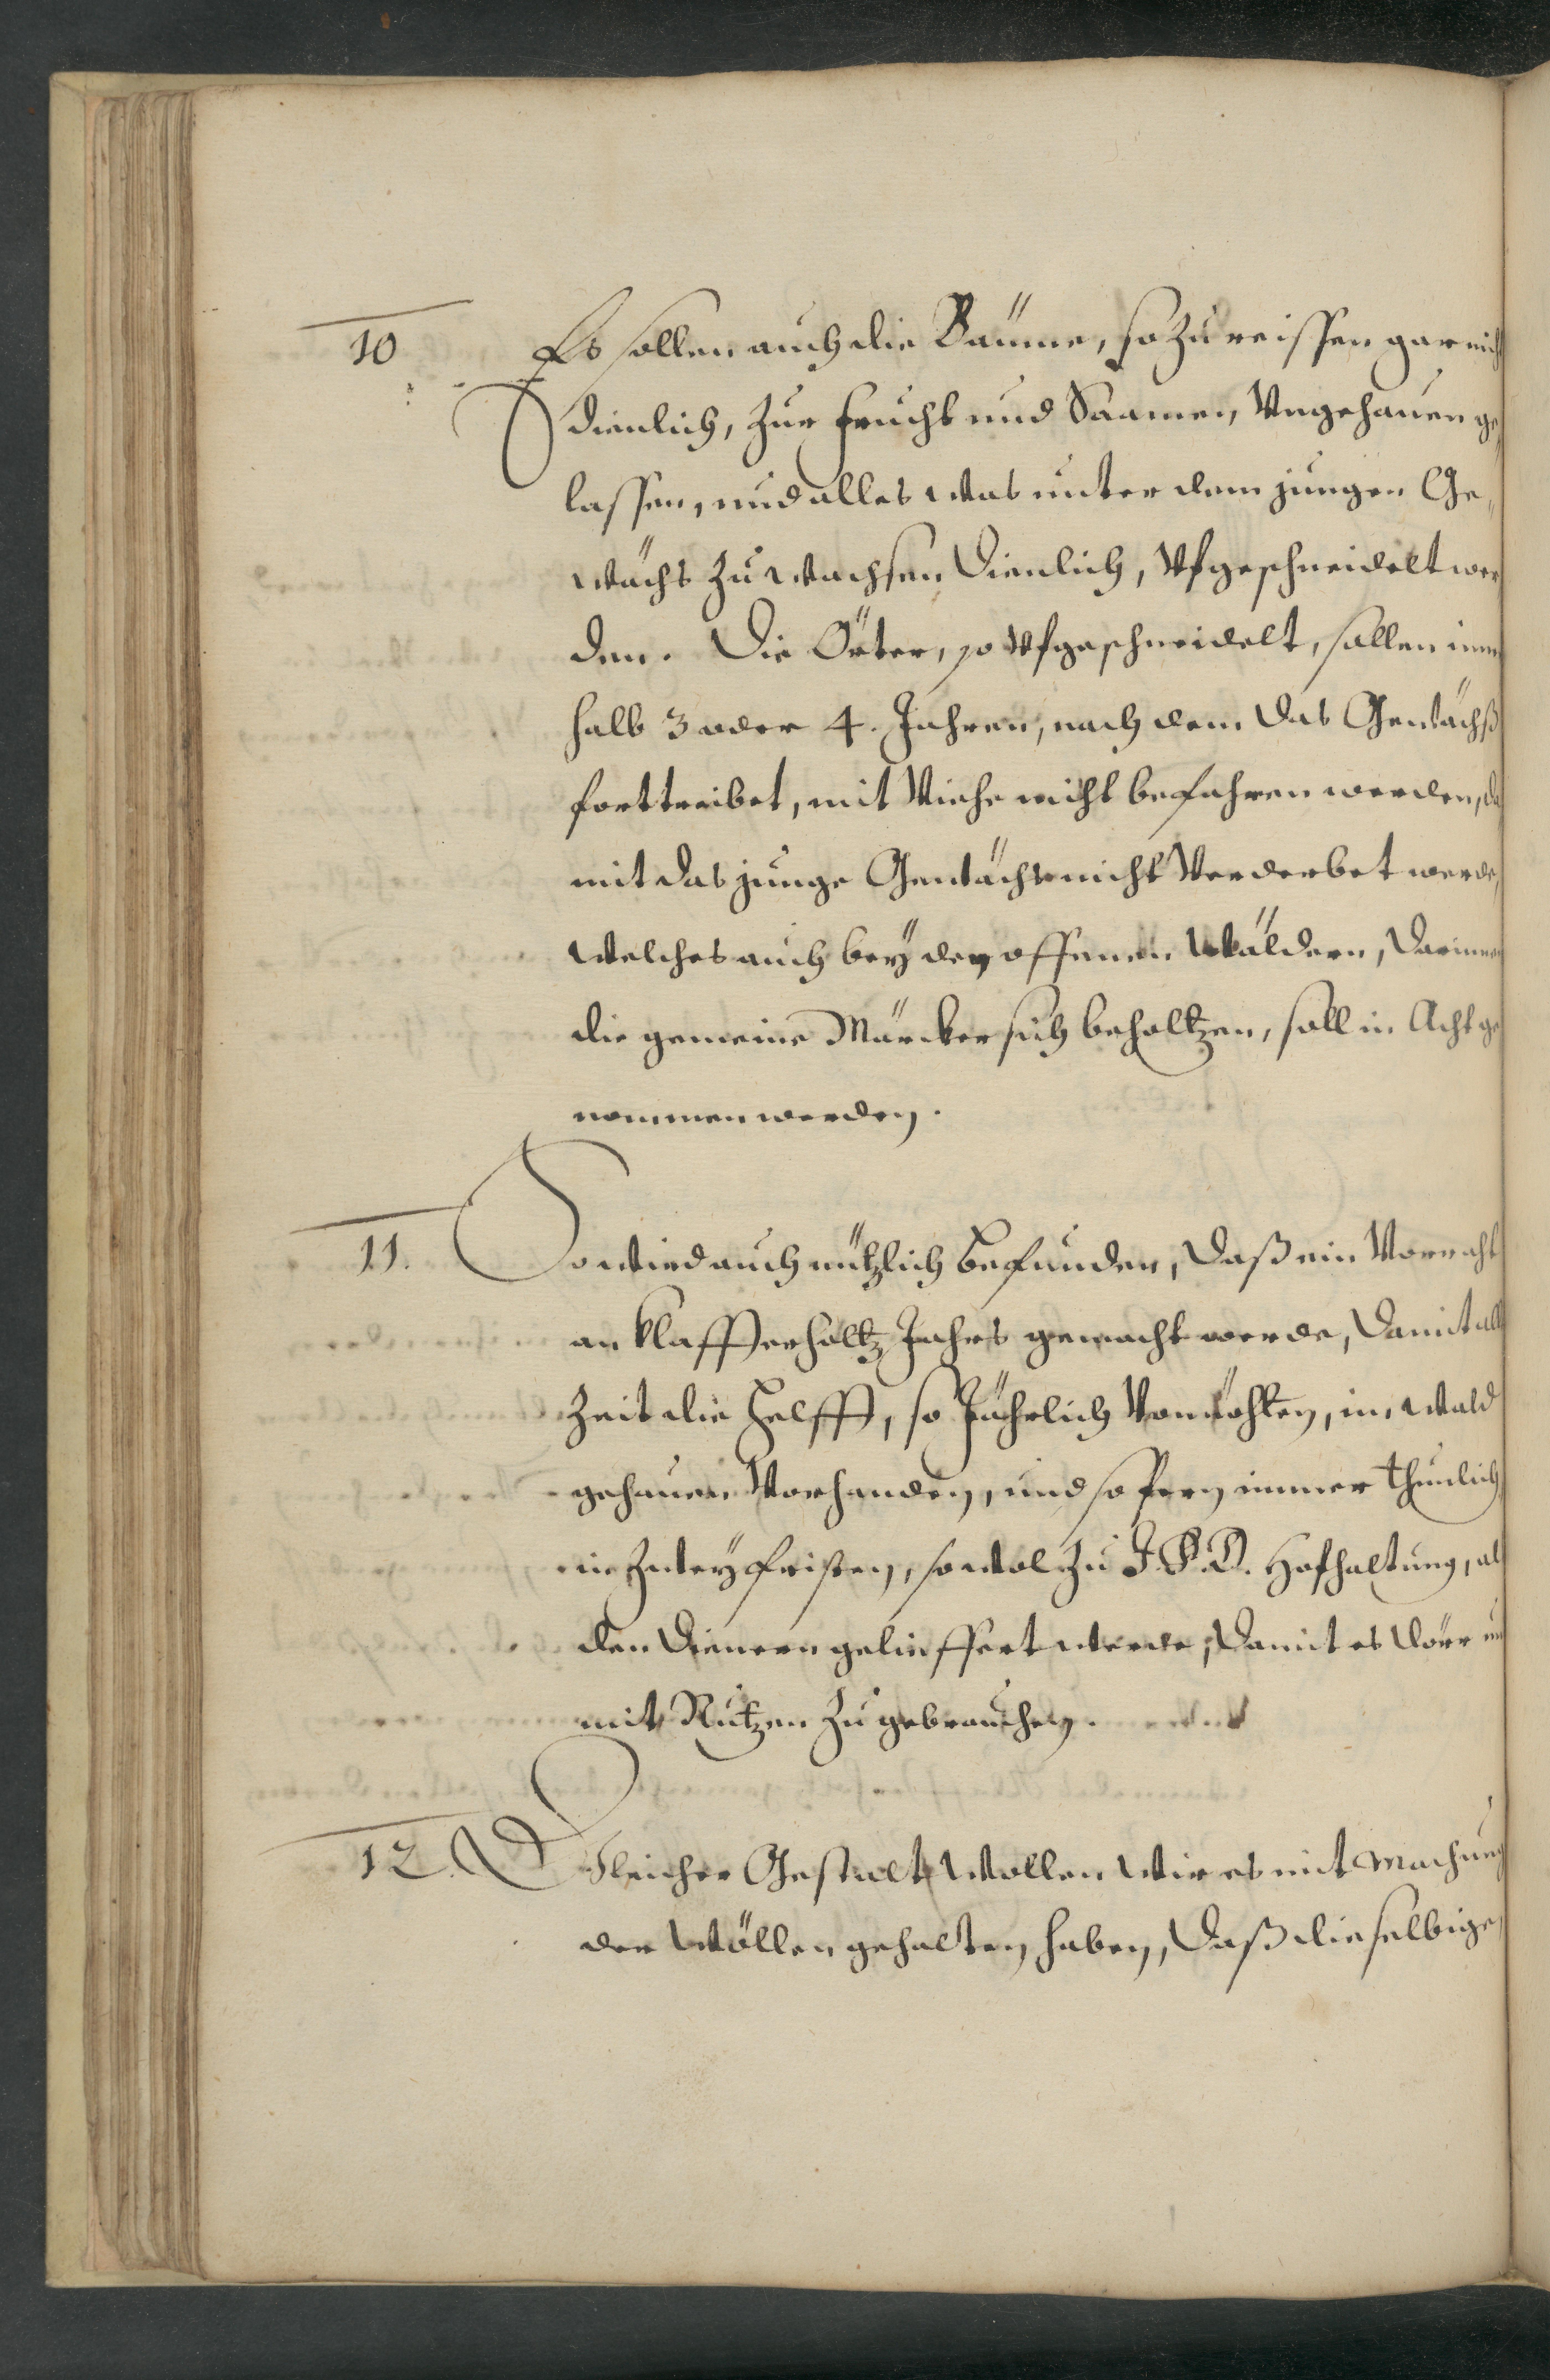 10 Es sollen auch die Bäume, so zu reissen gar nicht
dienlich, zur frucht und Saamen, Ungehauen ge
lassen, und alles was unter dem jungen Ge,
wächs zu wachsen dienlich, Ufgeschneidelt wer
den. Die Örter, so Ufgeschneidelt, sollen inner
halb 3 oder 4. Jahren, nach dem das Gewächß
forttreibet, mit Viehe nicht befahren werden, da
mit das junge Gewächs nicht Verderbet werde,
Welches auch beÿ den offenen Wäldern, darinnen
die gemeine Märcker sich beholtzen, soll in Acht ge
nommen werden.
11. So wird auch nützlich befunden, daß ein Vorraht
an klaffterholtz Jahrs gemacht werde, damit all
Zeit die helfft, so Jährlich Vonnöhten, im wald
gehauen Vorhanden, und so fern immer thunlich,
in Zweÿ fristen, so wol zu J. F. D. Hofhaltung, als
den dienern gelieffert werde, damit es dörr und
mit Nutzen zu gebrauchen.
12. Gleicher Gestalt Wollen Wir es mit machung
der Wöllen gehalten haben, daß dieselbige,